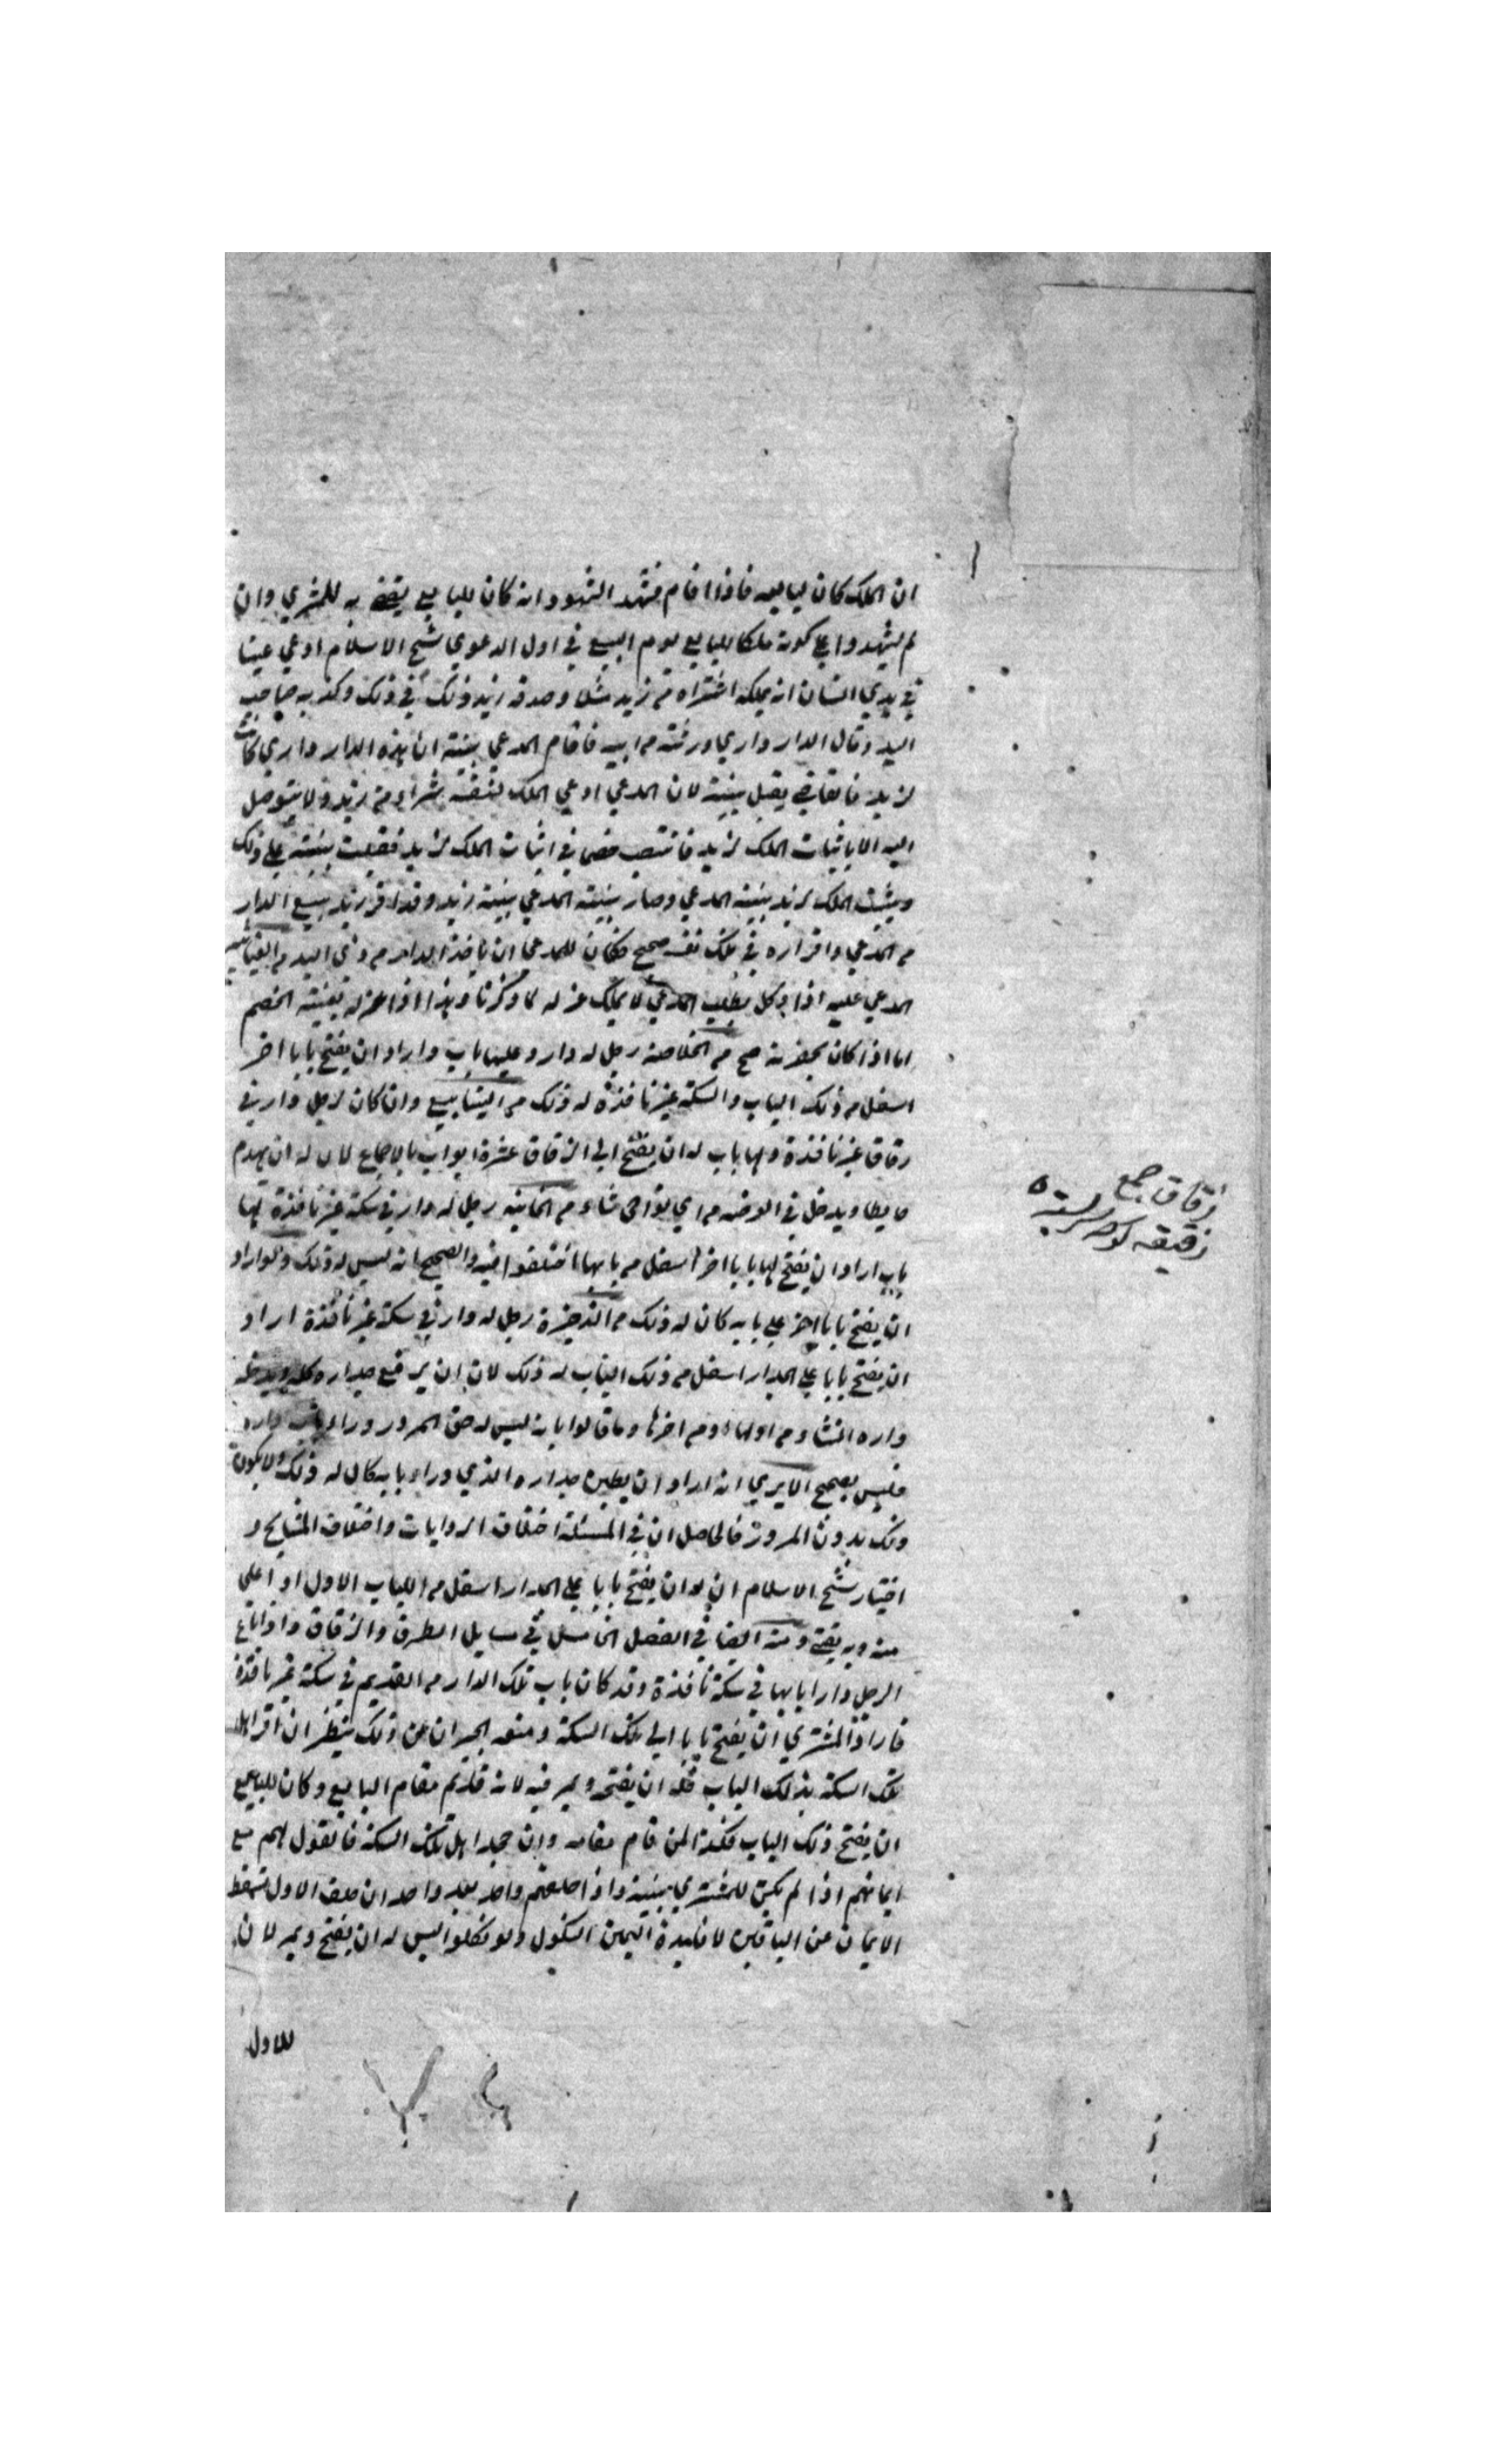 ان الملك كان لبايعه فاذا اقام فشهد الشهود انه كان للبايع يقضى به للمشري وان
لم يشهدوا على كونه ملكا للبايع يوم البيع في اول الدعوى شيخ الاسلام ادعى عينا
في يدي انسان انه يملكه اشتراه من زيد مثلا وصدقه زيد ذلك في ذلك وكذبه صاحب
اليد وقال الدار داري ورثته من ابيه فاقام المدعي بينة ان هذه الدار داري كانت
لزيد فالقاضي يقبل بينته لان المدعي ادعى الملك لنفسه شراء من زيد ولا يتوصل
اليه الا باثبات الملك لزيد فانتصب خصما في اثبات الملك لزيد فقبلت بينته على ذلك
ويثبت الملك لزيد ببينة المدعي وصار بينة المدعي بينة زيد وقد اقر زيد ببيع الدار
من المدعي واقراره في ملك نفسه صحيح فكان للمدعي ان ياخذ الدار من ذي اليد من
المدعي عليه اذا وكل بطلب المدعي لا يملك عزله لما ذكرنا وهذا اذا عزله بغيبة الخصم
اما اذا كان بحضرته صح من الخلاصة رجل له دار وعليها باب واراد ان يفتح بابا اخر
اسفل من ذلك الباب والسكة غير نافذة له ذلك من الينابيع وان كان لرجل دار في
زقاق غير نافذة ولها باب له ان يفتح الى الزقاق عشرة ابواب بالاجماع لان له ان يهدم
حايطا ويدخل في العرصة من اي نواحي شاء من الخانية رجل له دار في سكة غير نافذة لها
باب اراد ان يفتح لها بابا اخر اسفل من بابها اختلفوا فيه والصحيح انه ليس له ذلك ولو اراد
ان يفتح بابا اخر على بابه كان له ذلك من الذخيرة رجل له دار في سكة غير نافذة اراد
ان يفتح بابا على الجدار اسفل من ذلك الباب له ذلك لان ان يرفع جداره كله ويدخل
داره ان شاء من اولها او من اخرها وما قالوا بانه ليس له حق المرور وراء باب داره
فليس بصحيح الا يرى انه اراد ان يطين جداره الذي وراء بابه كان له ذلك ولا يكون
ذلك بدون المرور فالحاصل ان في المسئلة اختلاف الروايات واختلاف المشايخ و
اختيار شيخ الاسلام ان له ان يفتح بابا على الجدار اسفل من الباب الاول او اعلى
منه وبه يفتى ومنه ايضا في الفصل الخامس في مسايل الطرق والزقاق واذا باع
الرجل دارا بابها في سكة نافذة وقد كان باب تلك الدار من القديم في سكة غير نافذة
فاراد المشتري ان يفتح بابا الى تلك السكة ومنعه الجيران عن ذلك ينظر ان اقر اهل
تلك السكة بذلك الباب فله ان يفتحه ويمر فيه لانه قايم مقام البايع وكان للبايع
ان يفتح ذلك الباب فكذا لمن قام مقامه وان جحد اهل تلك السكة فالقول لهم مع
ايمانهم اذا لم يكن للمشتري بينة واذا حلفهم واحد بعد واحد ان حلف الاول سقط
الايمان عن الباقين لا فايدة اليمين النكول ولو نكلوا ليس له ان يفتح ويمر لان
للاول
زقاق جمع
زقيقه